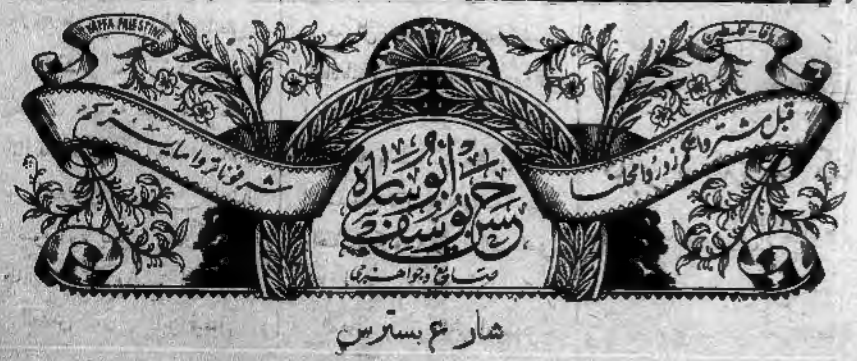 PALESTINE
يافا - فلسطين
قبل مشترواتكم زوروا محلنا
شرفونا تروا ما يسركم
حسن يوسف أبو ساره
صائغ وجواهرجي
شارع بسترس